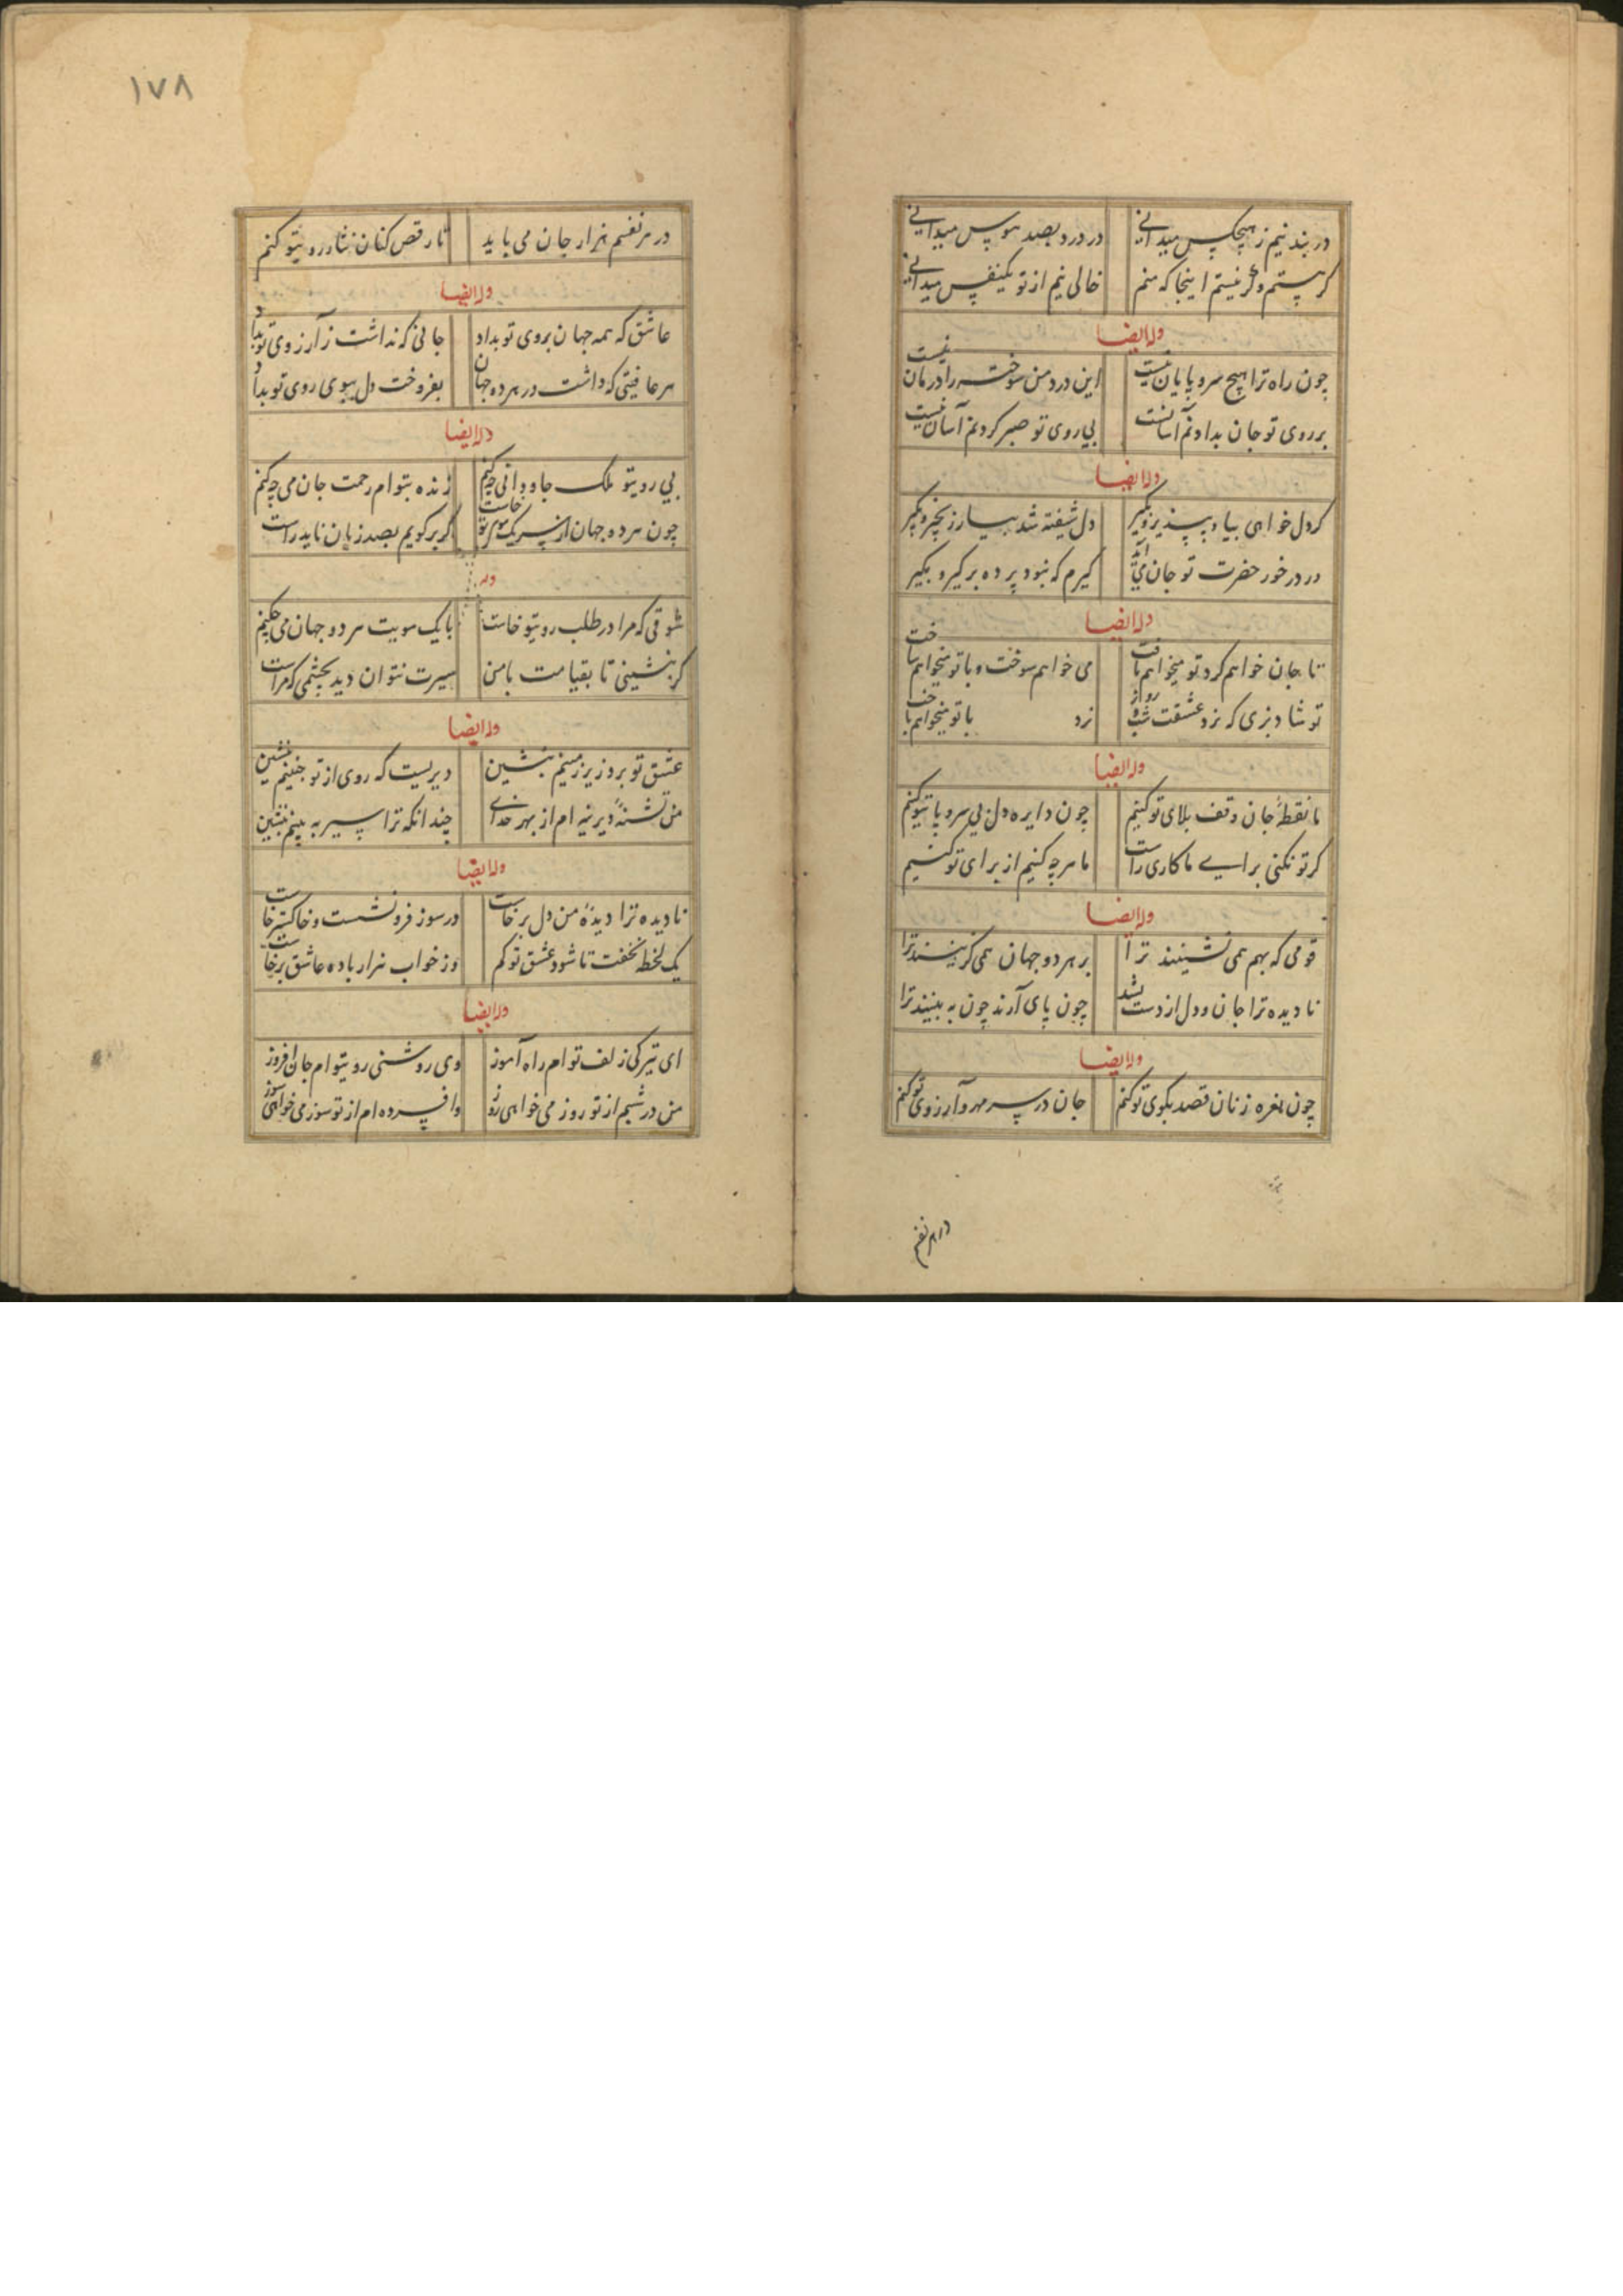 در بند نیم ز هیچکس میدانی
در درد بصد هوس میدانی
گر هستم وگر نیستم اینجا که منم
خالی نیم از تو یکنفس میدانی
وله ایضا
چون راه ترا هیچ سر و پایان نیست
این درد من سوخته را درمان نیست
بر روی تو جان بدادنم آسانست
بی روی تو صبر کردنم آسان نیست
وله ایضا
گر دل خواهی بیا و بپذیر و بگیر
دل شیفته شد بیار زنجیر و بگیر
ور در خور حضرت تو جان می آید
گیرم که نبود پرده برگیر و بگیر
وله ایضا
تا جان خواهم کرد تو میخواهم تافت
می خواهم سوخت و با تو میخواهم ساخت
تو شاد بزی که نرد عشقت شب و روز
نرد با تو میخواهم باخت
وله ایضا
ما نقطهٔ جان وقف بلای تو کنیم
چون دایره دل بی سر و پا تیو کنم
گر تو نکنی برای ما کاری راست
ما هر چه کنیم از برای تو کنیم
وله ایضا
قومی که بهم همی نشینند ترا
بر هر دو جهان همی گزینند ترا
نادیده ترا جان و دل از دست بشد
چون پای آرند چون به بینند ترا
وله ایضا
چون نعره زنان قصد بکوی تو کنم
جان در سر مهر و آرزوی تو کنم
در هر نفسم
١٧٨
در هر نفسم هزار جان می باید
تا رقص کنان نثار رویتو کنم
وله ایضا
عاشق که همه جهان بروی تو بداد
جانی که نداشت ز آرزوی تو بداد
هر عافیتی که داشت در هر ده جهان
بفروخت دل ببوی روی تو بداد
وله ایضا
بی رویتو ملک جاودانی چکنم
زنده بتو ام زحمت جان می چکنم
چون هر ده جهان از سر یک موی تو خاست
گر بر گویم بصد زبان ناید راست
وله
شوقی که مرا در طلب رویتو خاست
با یک سویت هر دو جهان می چکنم
گر بنشینی تا بقیامت با من
سیرت نتوان دید بچشمی که مراست
وله ایضا
عشق تو بروز یر زمینم بنشین
دیریست که روی از تو چنینم بنشین
من تشنهٔ دیرینه ام از بهر خدای
چندانکه ترا سیر به بینم بنشین
وله ایضا
نادیده ترا دیدهٔ من دل برخاست
در سوز فرو نشست و خاکستر خاست
یک لحظه نخفت تا شود عشق تو کم
وز خواب هزار باده عاشق برخاست
وله ایضا
ای تیرگی زلف تو ام راه آموز
وی روشنی رویتو ام جان افروز
من در شبم از تو روز می خواهی روز
وافسرده ام از تو سوز می خواهی سوز